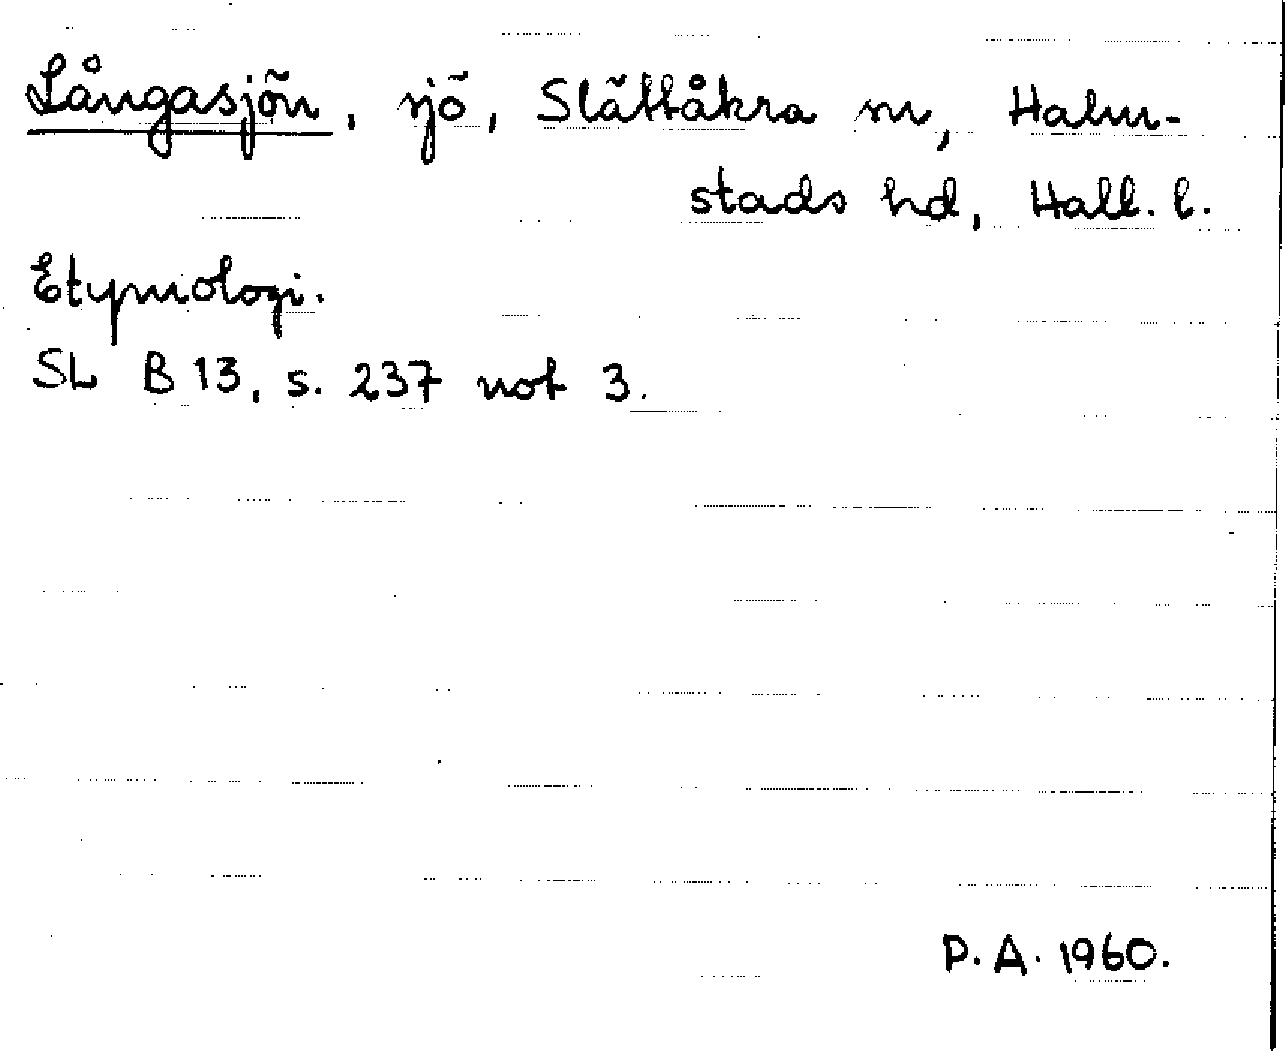 Långasjön, sjö, Slättåkra sn, Halm-
stads hd, Hall. l.
Etymologi.
SL B 13, s. 237 not 3.
P. A. 1960.